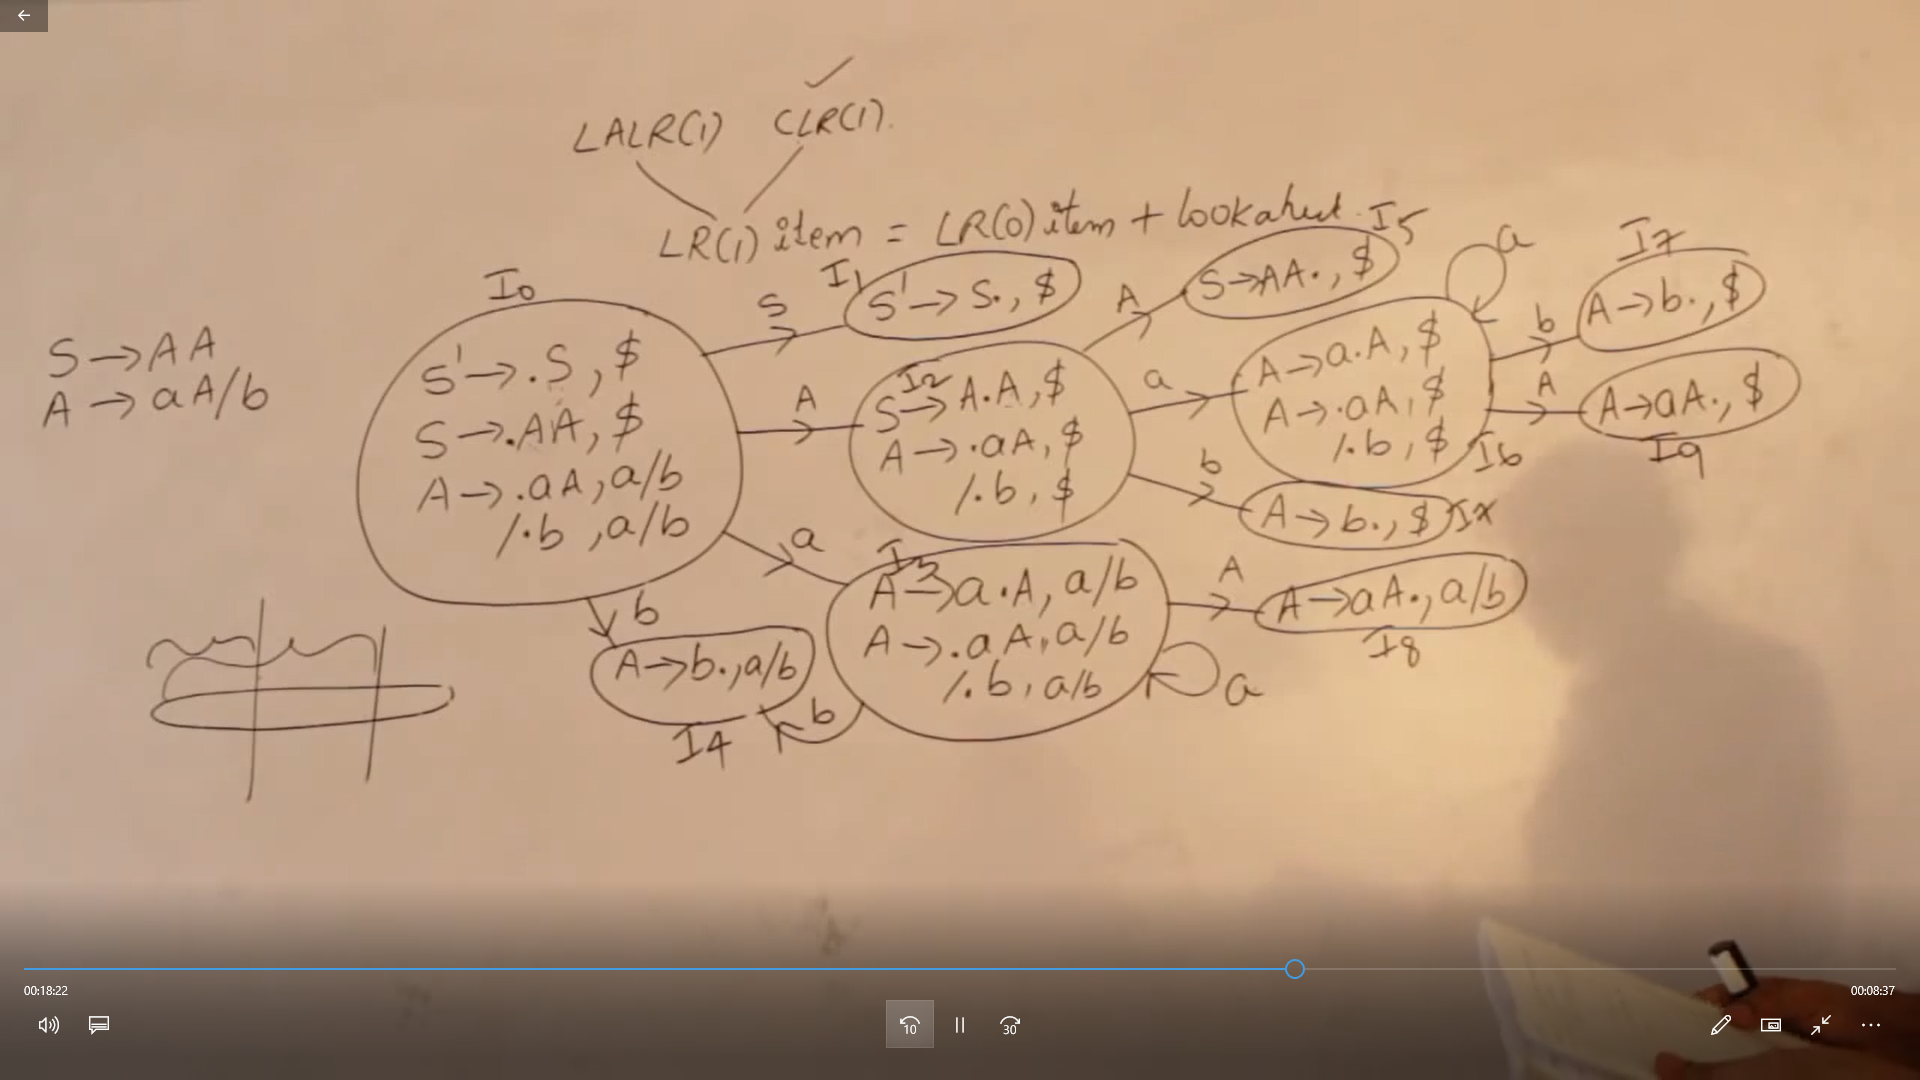 LALR(1) CLR(1).
LR(1) item = LR(0) item + lookahed.
S → AA
A → aA/b
I0
S' → .S, $
S → .AA, $
A → .aA, a/b
/.b, a/b
S
I1
S' → S., $
A
I2
S → A.A, $
A → .aA, $
/.b, $
A
I5
S → AA., $
a
a
A → a.A, $
A → .aA, $
/.b, $
I6
b
I7
A → b., $
A
A → aA., $
I9
b
A → b., $
a
I3
A → a.A, a/b
A → .aA, a/b
/.b, a/b
a
A
A → aA., a/b
I8
b
A → b., a/b
I4
b
00:18:22
00:08:37
10
30